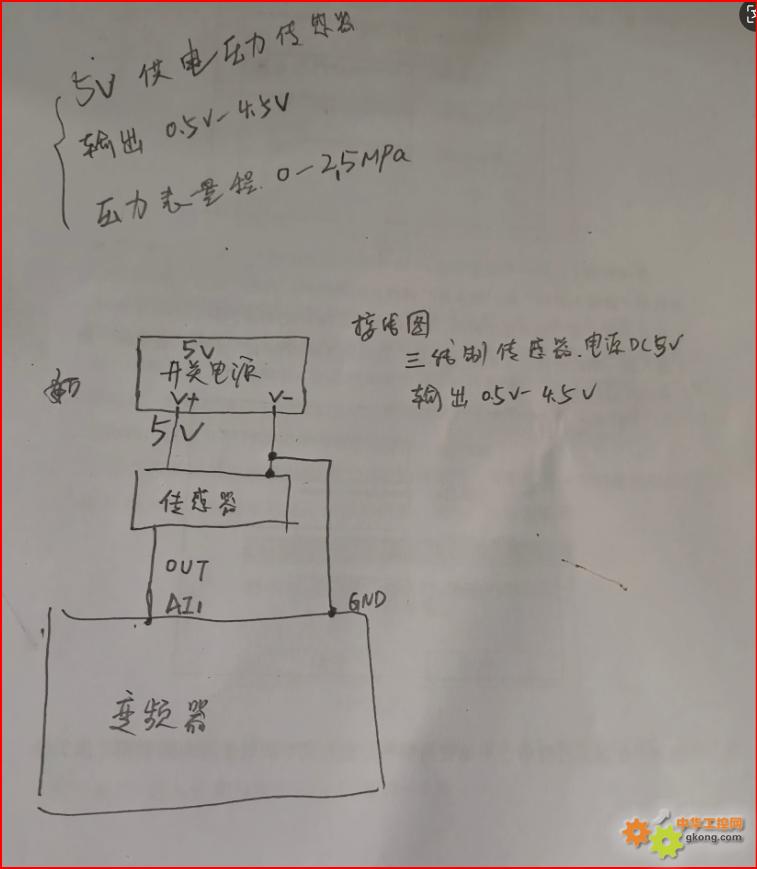 5V 供电压力传感器
输出 0.5V-4.5V
压力表量程 0-2.5MPa
接线图
三线制传感器.电源DC5V
输出0.5V-4.5V
5V
开关电源
V+ V-
5V
传感器
OUT
AI1
GND
变频器
中华工控网
gkong.com